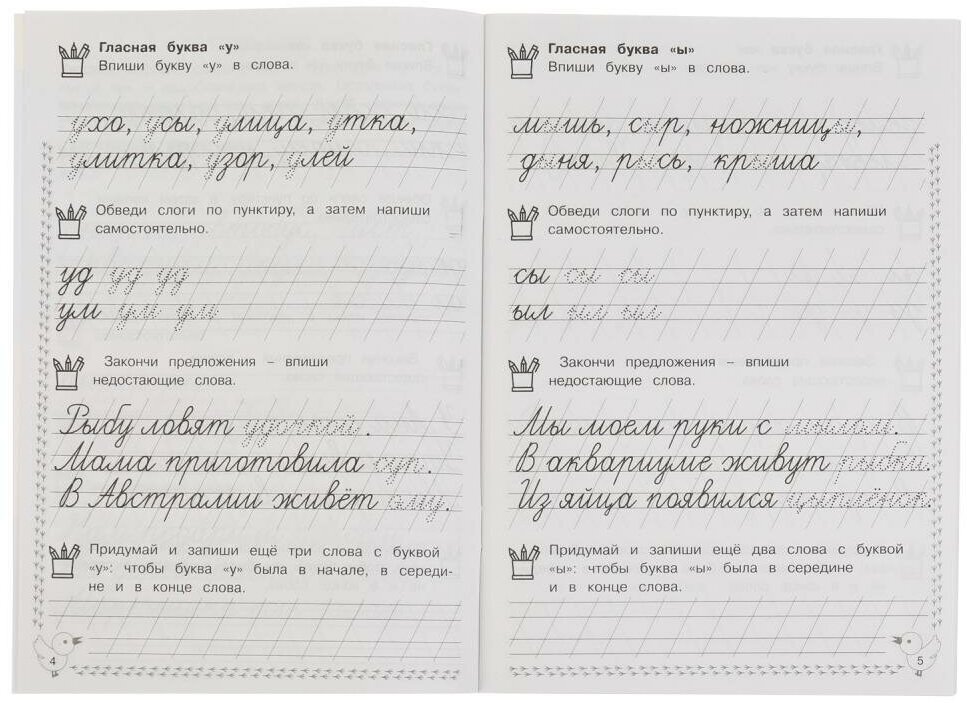 Гласная буква «у»
Впиши букву «у» в слова.
ухо, усы, улица, утка,
улитка, узор, улей
Обведи слоги по пунктиру, а затем напиши
самостоятельно.
уд уд уд
ум ум ум
Закончи предложения – впиши
недостающие слова.
Рыбу ловят удочкой.
Мама приготовила суп.
В Австралии живёт эму.
Придумай и запиши ещё три слова с буквой
«у»: чтобы буква «у» была в начале, в середи-
не и в конце слова.
4
Гласная буква «ы»
Впиши букву «ы» в слова.
мышь, сыр, ножницы,
дыня, рысь, крыша
Обведи слоги по пунктиру, а затем напиши
самостоятельно.
сы сы сы
ыл ыл ыл
Закончи предложения – впиши
недостающие слова.
Мы моем руки с мылом.
В аквариуме живут рыбки.
Из яйца появился цыплёнок.
Придумай и запиши ещё два слова с буквой
«ы»: чтобы буква «ы» была в середине
и в конце слова.
5